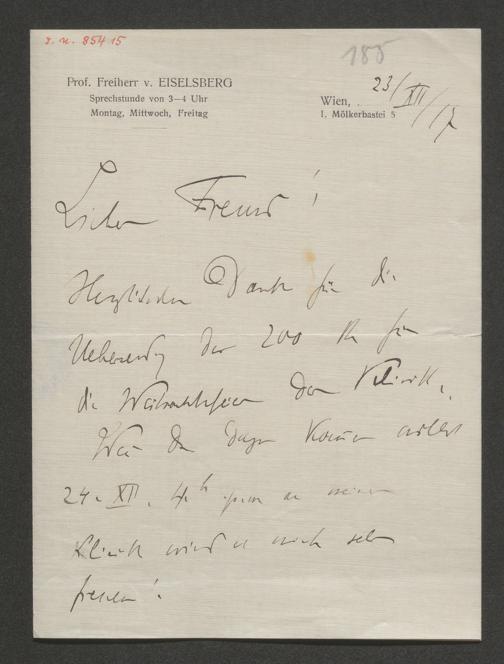 I. N. 85415
185
Prof. Freiherr v. EISELSBERG
Sprechstunde von 3—4 Uhr
Montag, Mittwoch, Freitag
Wien, 23/XII/17
I, Mölkerbastei 5
Lieber Freund!
Herzlichsten Dank für die
Uebersendg der 200 K für
die Weihnachtsfeier der Klinik,
Wen Du kommen willst
24. XII. 4h an meiner
Klinik wird es mich sehr
freuen!